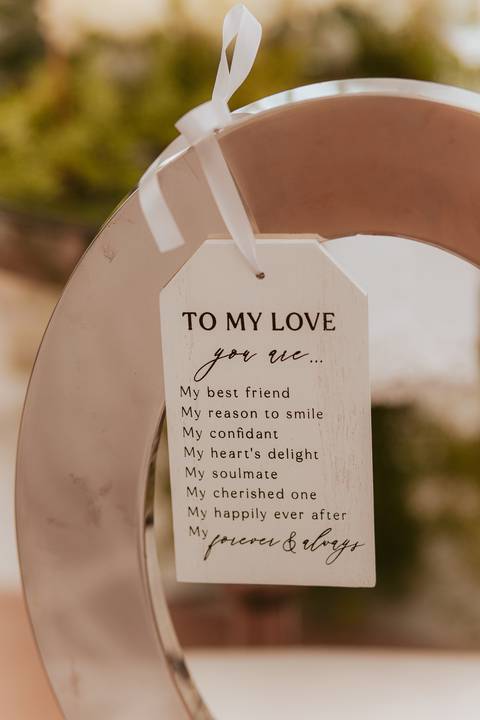 TO MY LOVE
you are...
My best friend
My reason to smile
My confidant
My heart's delight
My soulmate
My cherished one
My happily ever after
My forever & always